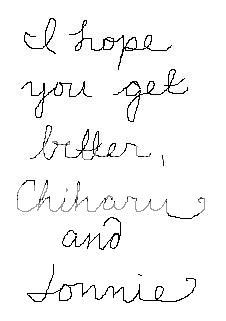 I hope
you get
better,
Chiharu
and
Lonnie